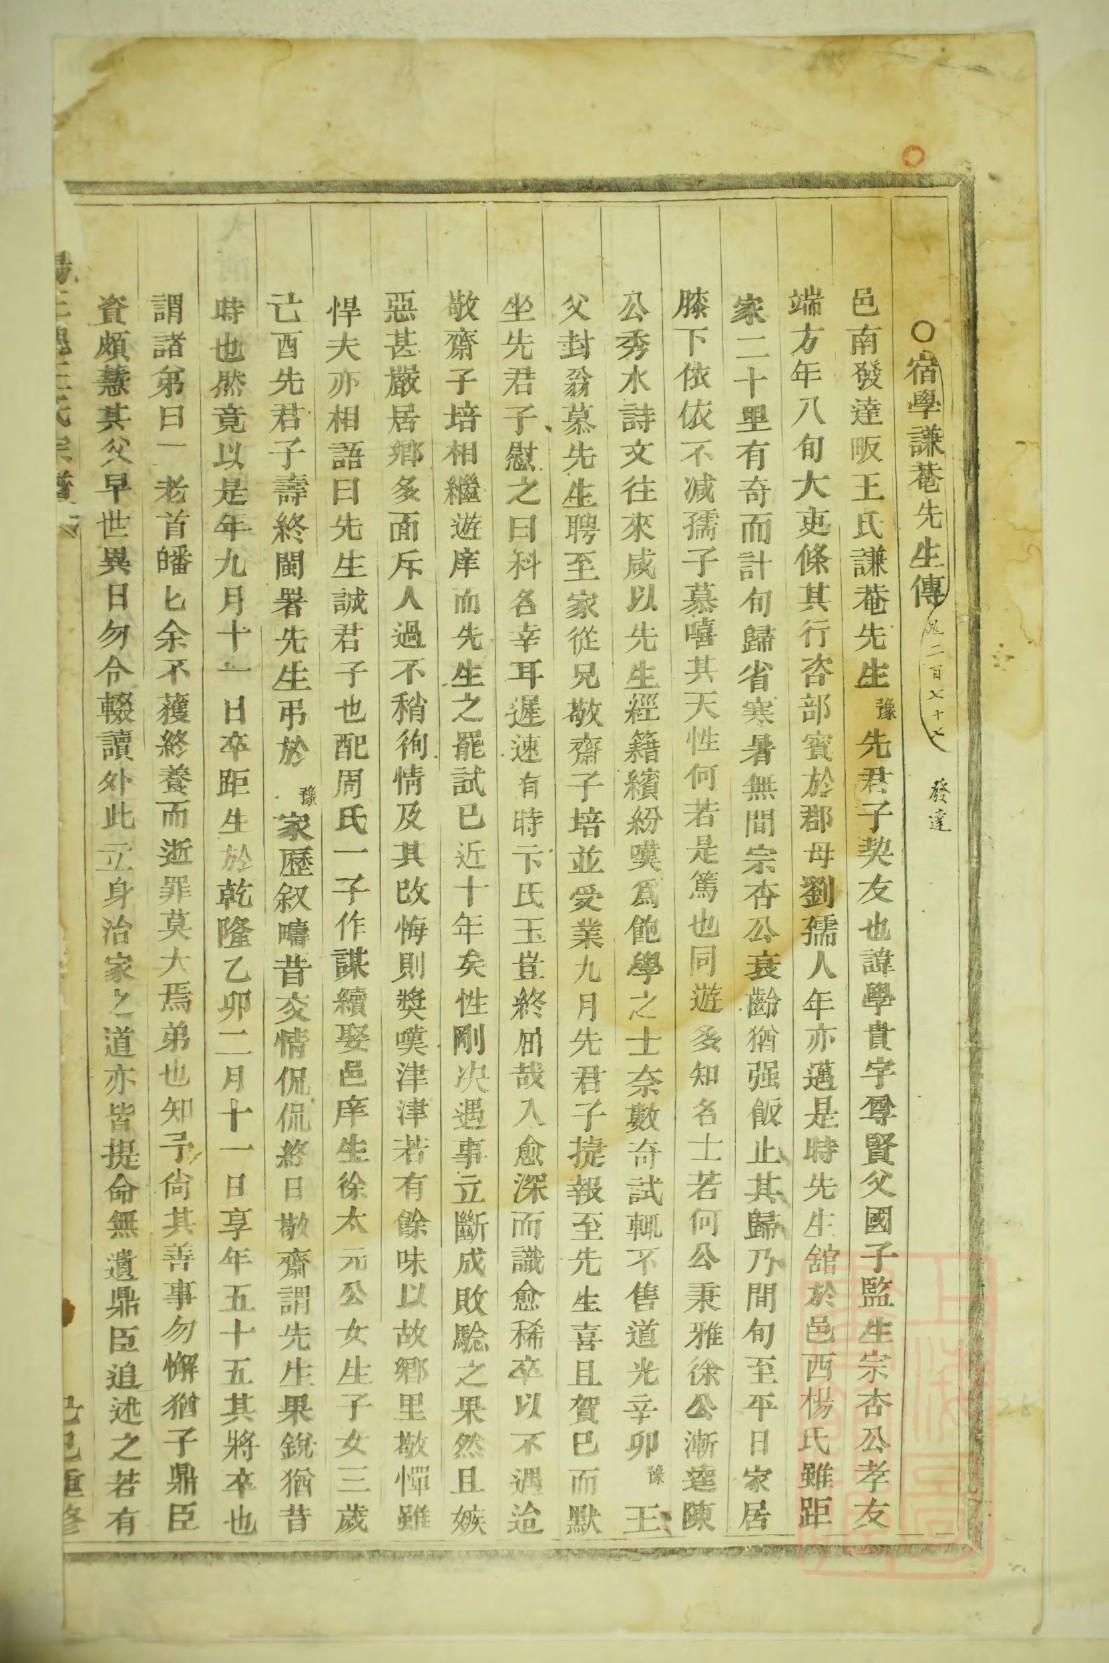 ○宿學謙菴先生傳 二百七十七 發達
邑南發達畈王氏謙菴先生豫先君子契友也諱學貴字尊賢父國子監生宗杏公孝友
端方年八旬大吏條其行咨部賓於郡母劉孺人年亦邁是時先生舘於邑西楊氏雖距
家二十里有奇而計旬歸省寒暑無間宗杏公衰齡猶强飯止其歸乃間旬至平日家居
膝下依依不减孺子慕嘻其天性何若是篤也同遊多知名士若何公秉雅徐公漸逵陳
公秀水詩文往來咸以先生經籍繽紛嘆爲飽學之士奈數奇試輒不售道光辛卯豫王
父封翁慕先生聘至家從兄敬齋子培並受業九月先君子捷報至先生喜且賀已而默
坐先君子慰之曰科名幸耳遲速有時卞氏玉豈終屈哉入愈深而識愈稀卒以不遇迨
敬齋子培相繼遊庠而先生之罷試已近十年矣性剛决遇事立斷成敗驗之果然且嫉
惡甚嚴居鄉多面斥人過不稍徇情及其改悔則奬嘆津津若有餘味以故鄉里敬憚雖
悍夫亦相語曰先生誠君子也配周氏一子作謀續娶邑庠生徐太元公女生子女三歲
己酉先君子壽終閩署先生弔於豫家歷叙疇昔交情侃侃終日敬齋謂先生果銳猶昔
時也然竟以是年九月十一日卒距生於乾隆乙卯二月十一日享年五十五其將卒也
謂諸弟曰一老首皤匕余不獲終養而逝罪莫大焉弟也知予尙其善事勿懈猶子鼎臣
資頗慧其父早世異日勿令輟讀外此立身治家之道亦皆提命無遺鼎臣追述之若有
王氏宗譜 己巳重修